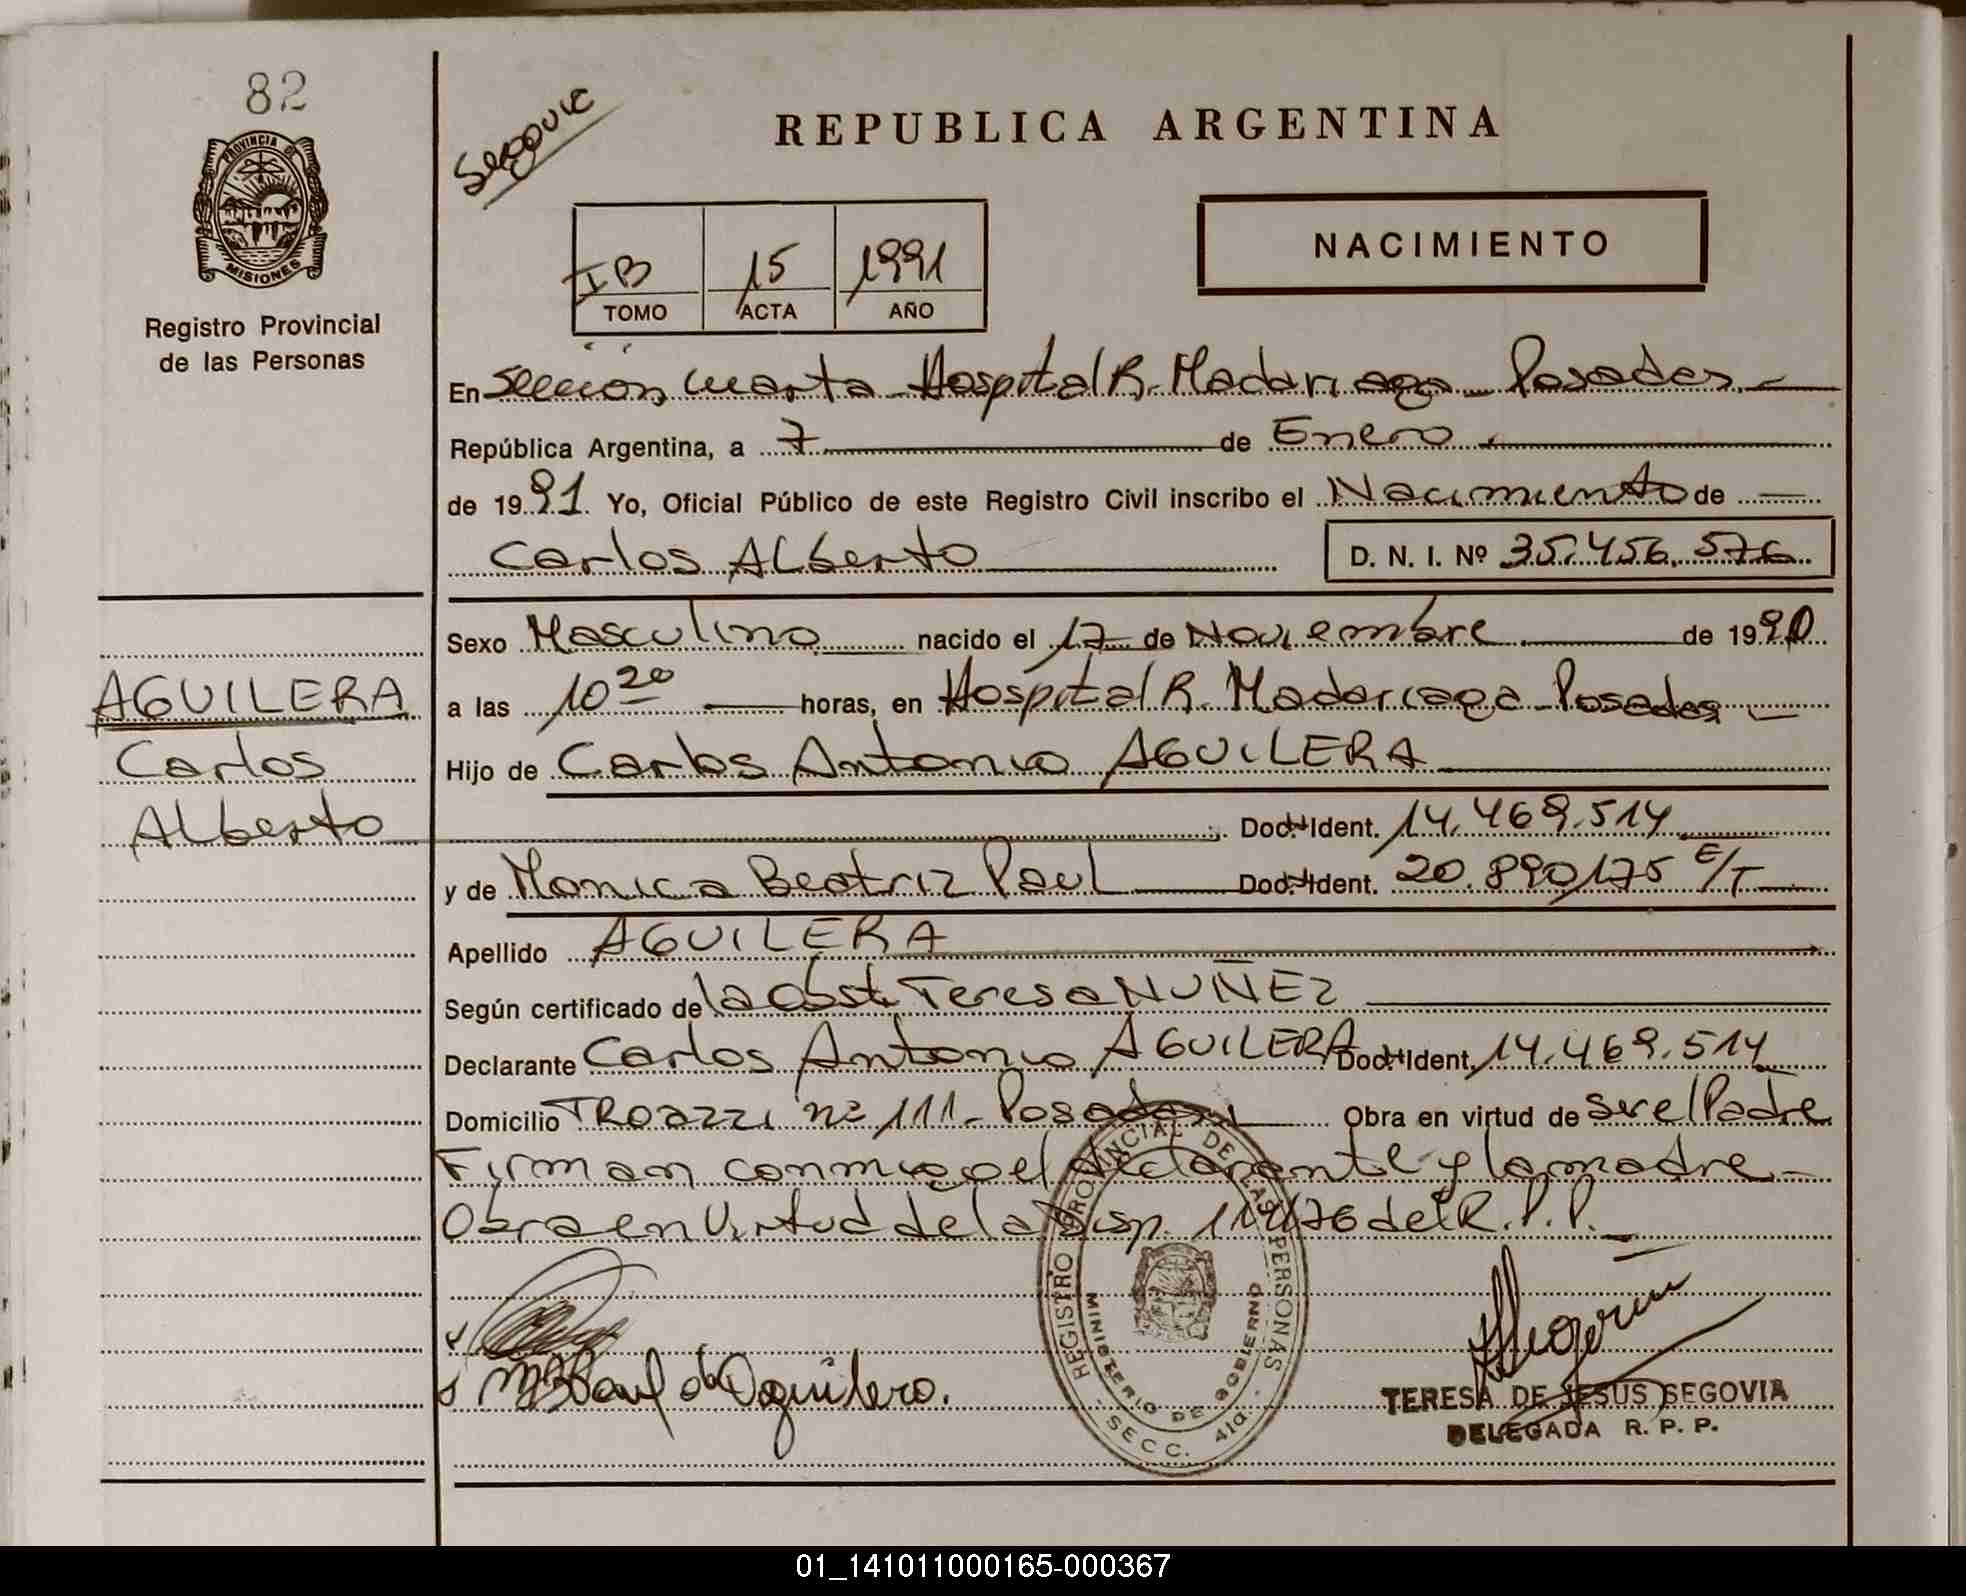 82
PROVINCIA DE
MISIONES
Registro Provincial
de las Personas
Segovia
REPUBLICA ARGENTINA
IB 15 1991
TOMO ACTA AÑO
NACIMIENTO
En Sección cuarta - Hospital R. Madariaga - Posadas -
República Argentina, a 7 de Enero
de 1991. Yo, Oficial Público de este Registro Civil inscribo el Nacimiento de
Carlos Alberto D. N. I. Nº 35.456.576
Sexo Masculino nacido el 17 de Noviembre de 1990
a las 10 20 horas, en Hospital R. Madariaga - Posadas -
Hijo de Carlos Antonio AGUILERA
Doc. Ident. 14.469.514
y de Monica Beatriz Paul Doc. Ident. 20.890.175 E/T
Apellido AGUILERA
Según certificado de la Obst. Teresa NUÑEZ
Declarante Carlos Antonio AGUILERA Doc. Ident. 14.469.514
Domicilio TROAZZI nº 111 - Posadas Obra en virtud de ser el Padre
Firman conmigo el declarante y la madre -
Obra en Virtud de la Disp. 111/76 del R.P.P. -
AGUILERA
Carlos
Alberto
Mª B Paul de Aguilera.
REGISTRO PROVINCIAL DE LAS PERSONAS
MINISTERIO DE GOBIERNO
- SECC. 4ta -
TERESA DE JESUS SEGOVIA
DELEGADA R. P. P.
01_141011000165-000367